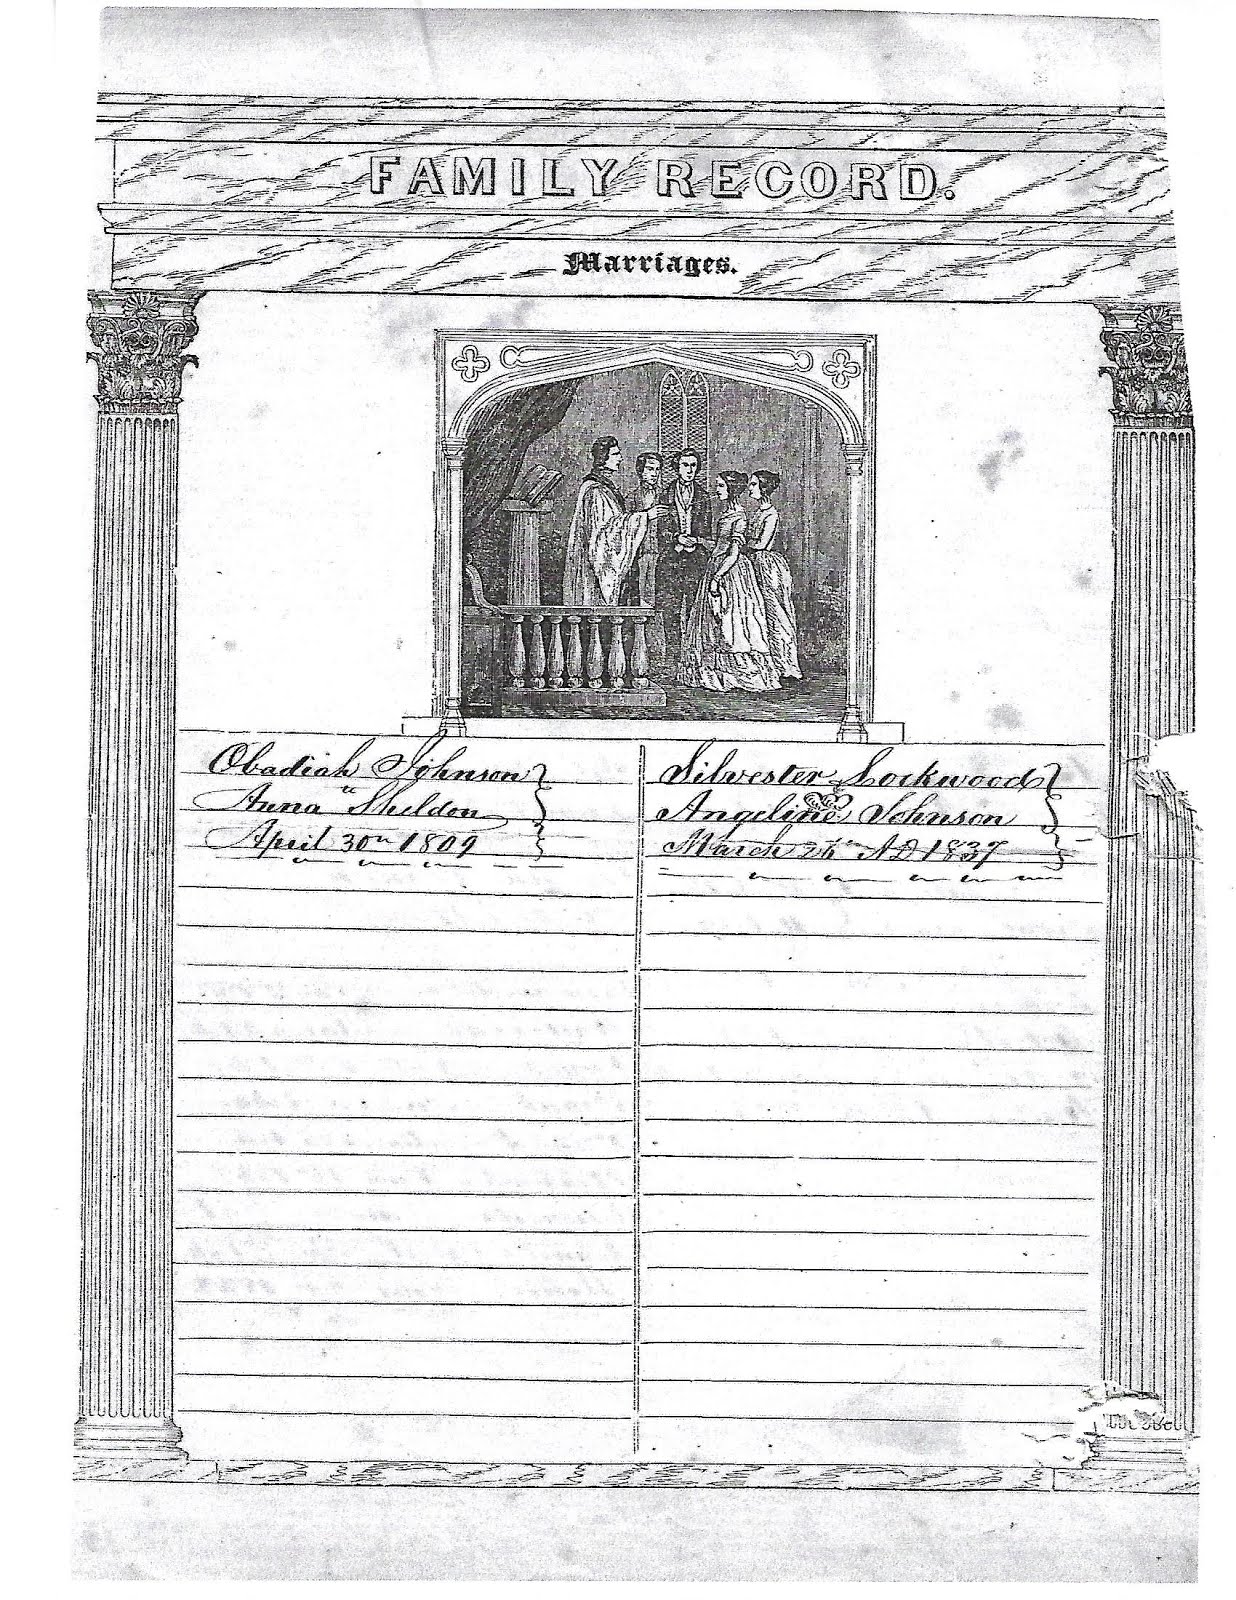 FAMILY RECORD.
Marriages.
Obadiah Johnson
Anna Sheldon
April 30th 1809
Silvester Lockwood
Angeline Johnson
March AD 1837